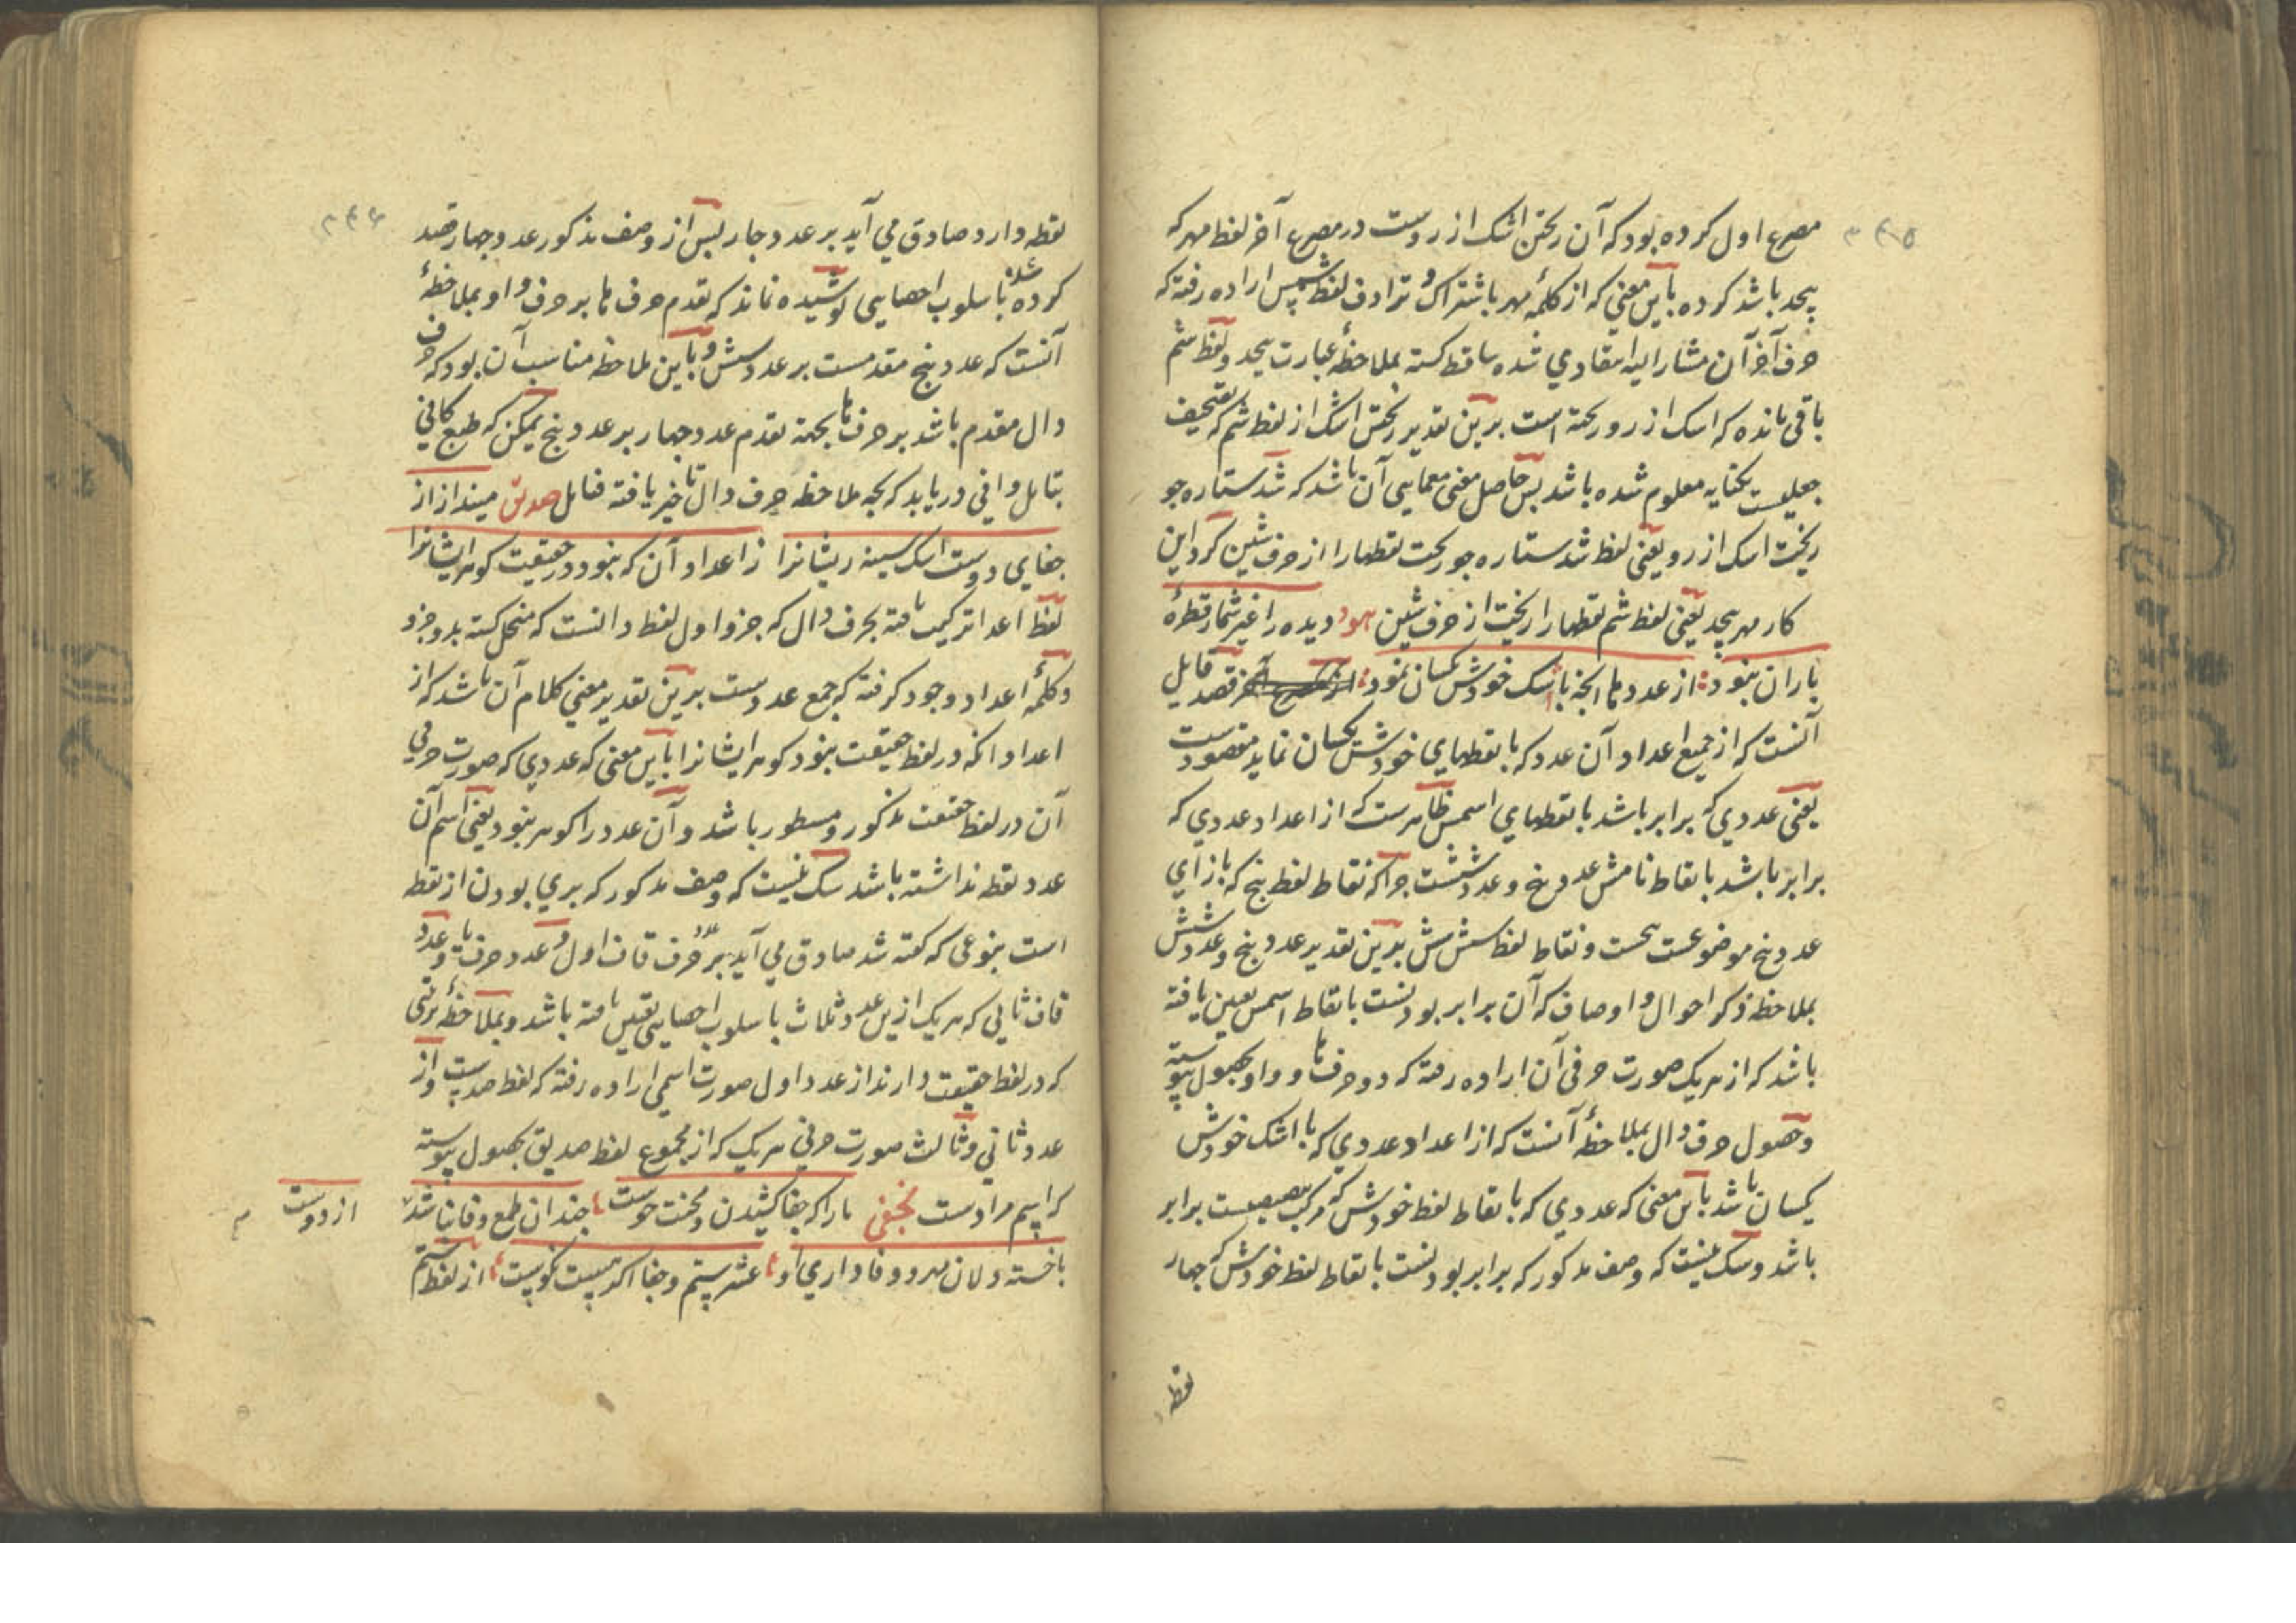 مصرع اول کرده بود که آن ریختن اشک از روست در مصرع آخر لفظ مهر که
پیچد باشد کرده باین معنی که از کلمهٔ مهر باشتراک و ترادف لفظ شمس اراده رفته که
حرف آخر آن مشار الیه شده ساقط کشته بملاحظهٔ عبارت پیچد و لفظ شم
باقی مانده که اشک از رو ریخته است برین تقدیر ریختن اشک از لفظ شم که بتصحیف
جعلیست بکنایه معلوم شده باشد پس حاصل معنی معمایی آن باشد که شد ستاره جو
ریخت اشک از رو یعنی لفظ شد ستاره جو ریخت نقطها را از حرف شین کرد این
کار مهر پیچد یعنی لفظ شم نقطها را ریخت از حرف شین هود دیده را غیر شمار قطرهٔ
باران نبود از عددها انچه با اشک خودش یکسان نمود قصد قایل
آنست که از جمیع اعداد آن عدد که با نقطهای خودش یکسان نماید مقصودست
یعنی عددی که برابر باشد با نقطهای اسمش ظاهرست که از اعداد عددی که
برابر باشد با نقاط نامش عدد پنج و عدد ششست چراکه نقاط لفظ پنج که بازای
عدد پنج موضوعست پنجست و نقاط لفظ شش شش برین تقدیر عدد پنج و عدد شش
بملاحظهٔ ذکر احوال و اوصاف که آن برابر بودنست با نقاط اسمش تعین یافته
باشد که از هر یک صورت حرفی آن اراده رفته که دو حرف ها و واو بحصول پیوسته
و حصول حرف دال بملاحظهٔ آنست که از اعداد عددی که با اشک خودش
یکسان باشد باین معنی که عددی که با نقاط لفظ خودش که برابر
باشد و شک نیست که وصف مذکور که برابر بودنست با نقاط لفظ خودش که چهار
لفظ
نقطه دارد صادق می آید بر عدد چار پس از وصف مذکور عدد چهار قصد
کرده شده باسلوب احصایی پوشیده نماند که تقدم حرف ها بر حرف واو بملاحظهٔ
آنست که عدد پنج مقدمست بر عدد شش و باین ملاحظه مناسب آن بود که حرف
دال مقدم باشد بر حرف ها بجهة تقدم عدد چهار بر عدد پنج یمکن که طبع کافی
بتامل وافی دریابد که بچه ملاحظه حرف دال تاخیر یافته فتامل صدیق میندازاز
جفای دوست اشک سینه ریشانرا ز اعداد آن که نبود در حقیقت کوهر ایشانرا
لفظ اعدا ترکیب یافته بحرف دال که جزو اول لفظ دانست که منحل کشته بدو جزو
و کلمهٔ اعداد وجود کرفته که جمع عددست برین تقدیر معنی کلام آن باشد که از
اعداد انکه در لفظ حقیقت نبود کوهر ایشانرا باین معنی که عددی که صورت حرفی
آن در لفظ حقیقت مذکور و مسطور باشد و آن عدد را کوهر نبود یعنی اسم آن
عدد نقطه نداشته باشد شک نیست که وصف مذکور که بری بودن از نقطه
است بنوعی که کفته شد صادق می آید بر عدد حرف قاف اول و عدد حرف یا و عدد
قاف ثانی که هر یک ازین عدد ثلاث باسلوب احصایی تعین یافته باشد و بملاحظهٔ ترتیبی
که در لفظ حقیقت دارند از عدد اول صورت اسمی اراده رفته که لفظ صدست و از
عدد ثانی و ثالث صورت حرفی هر یک که از مجموع لفظ صدیق بحصول پیوسته
که اسم مرادست نجفی یارا که جفا کشیدن و محنت خوست چندان طمع وفا نباشد
از دوست
با خسته دلان مهر و وفاداری او عشر ستم و جفا اکر هست نکوست از لفظ ستم